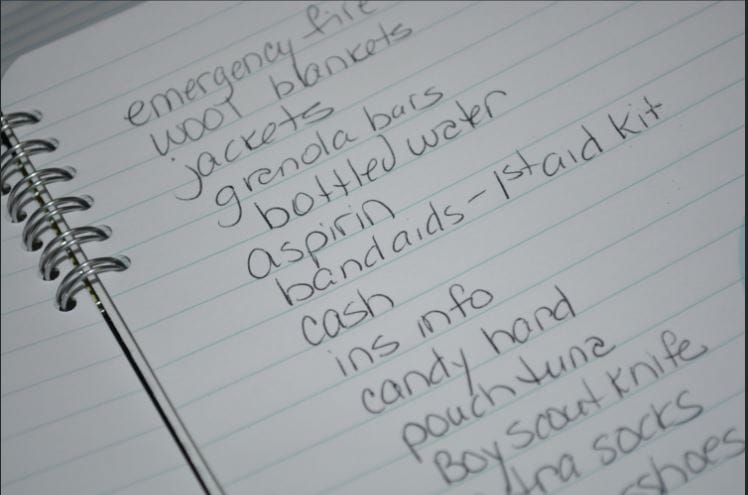 emergency fire
wool blankets
jackets
grenola bars
bottled water
aspirin
bandaids - 1st aid kit
cash
ins info
candy hard
pouch tuna
Boy scout knife
socks
shoes